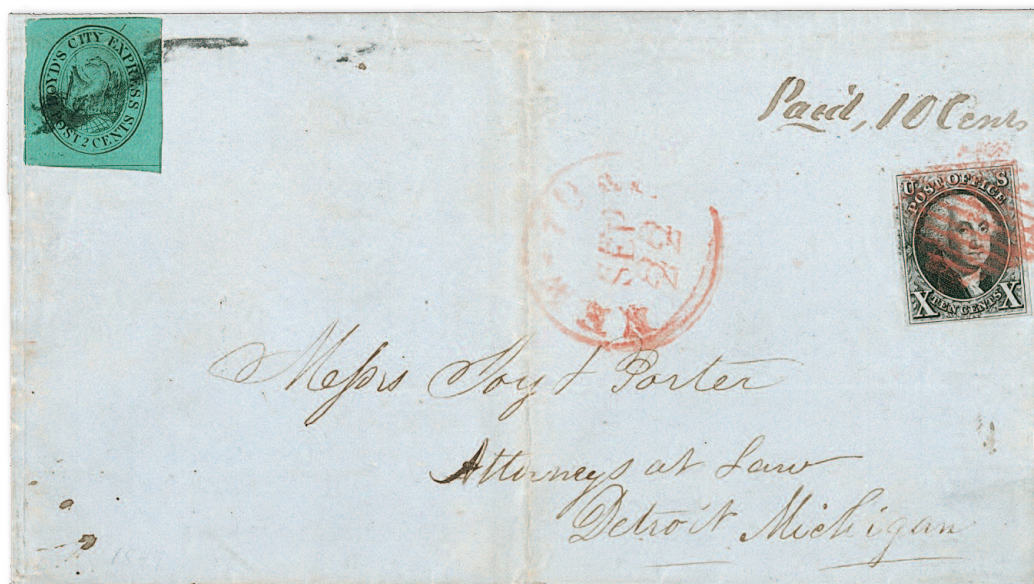 BOYD'S CITY EXPRESS STS
POST 2 CENTS
Paid, 10 Cents
U S
POST OFFICE
X TEN CENTS X
SEP
22
Messrs Joy & Porter
Attorneys at Law
Detroit Michigan